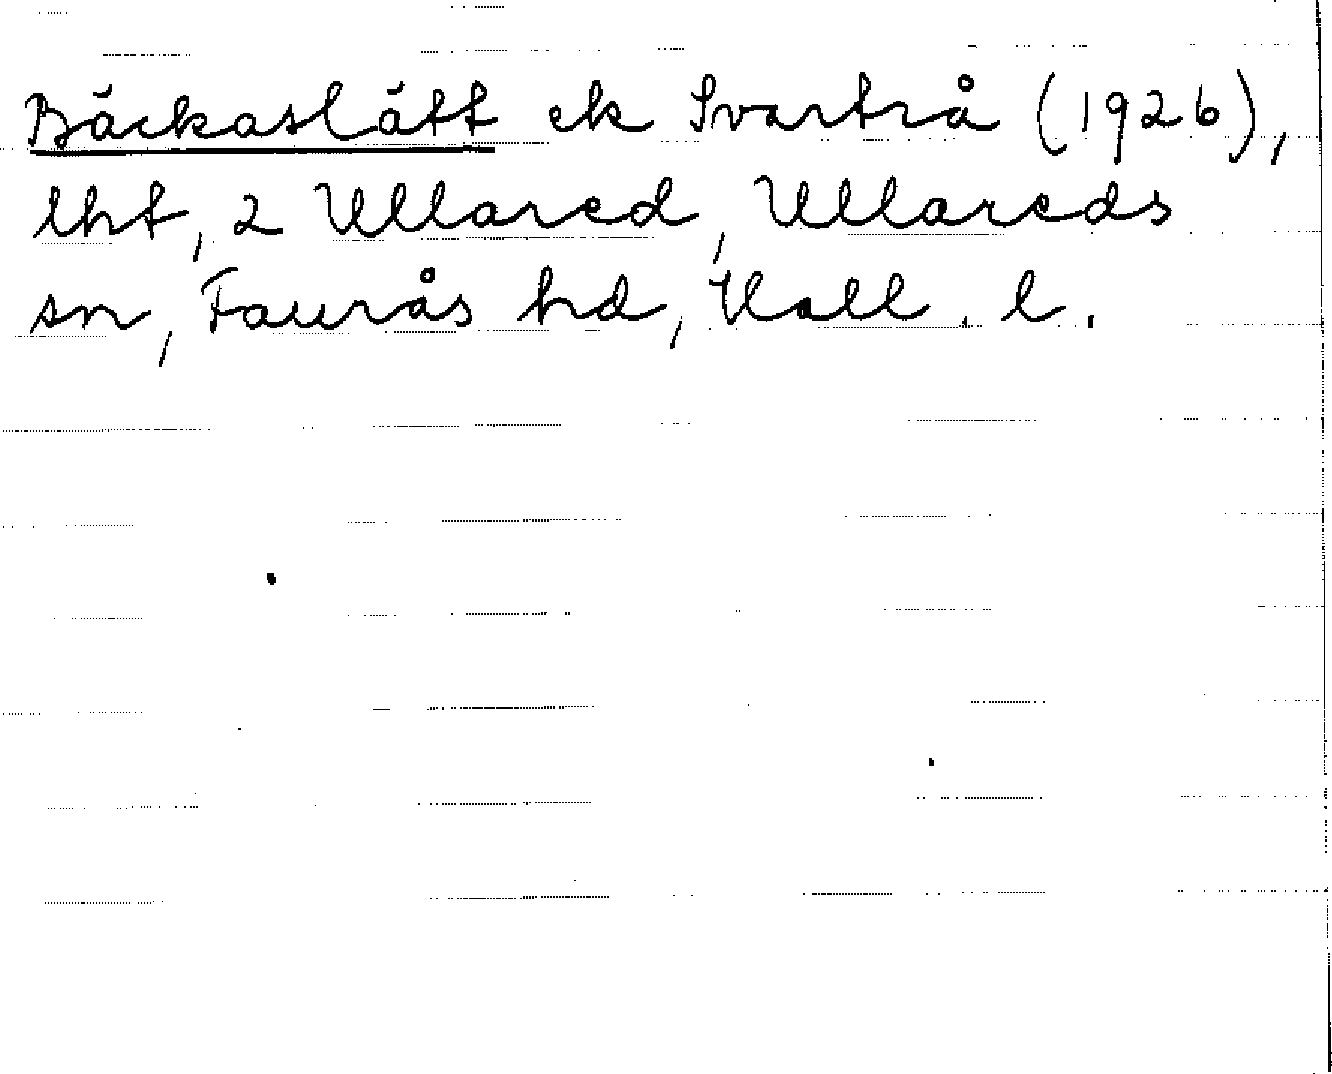 Bäckaslätt ek Svartrå (1926),
lht, 2 Ullared, Ullareds
sn, Faurås hd, Hall. l.